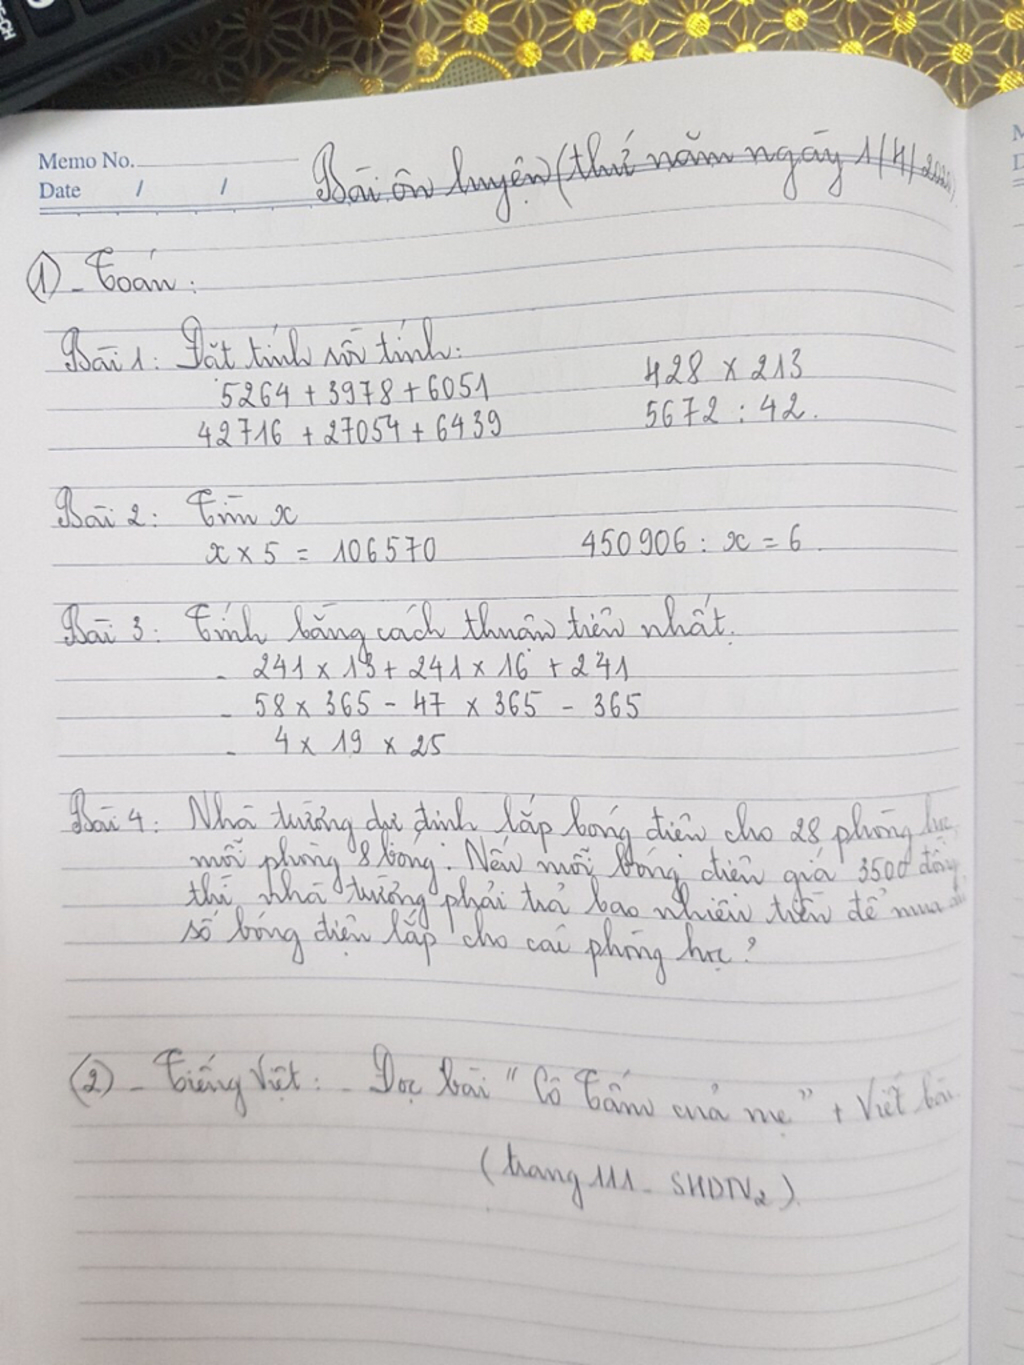 Memo No.
Date / /
Bài ôn luyện (thứ năm ngày 1/4/
① - Toán:
Bài 1: Đặt tính rồi tính:
5264 + 3978 + 6051 428 x 213
42716 + 27054 + 6439 5672 : 42.
Bài 2: Tìm x
x x 5 = 106570 450906 : x = 6.
Bài 3: Tính bằng cách thuận tiện nhất.
- 241 x 13 + 241 x 16 + 241
- 58 x 365 - 47 x 365 - 365
- 4 x 19 x 25
Bài 4: Nhà trường dự định lắp bóng điện cho 28 phòng học,
mỗi phòng 8 bóng. Nếu mỗi bóng điện giá 3500 đồng
thì nhà trường phải trả bao nhiêu tiền để mua
số bóng điện lắp cho các phòng học?
② - Tiếng Việt: - Đọc bài "Cô Tấm của mẹ" + Viết bài.
(trang 111 - SHDTV2).